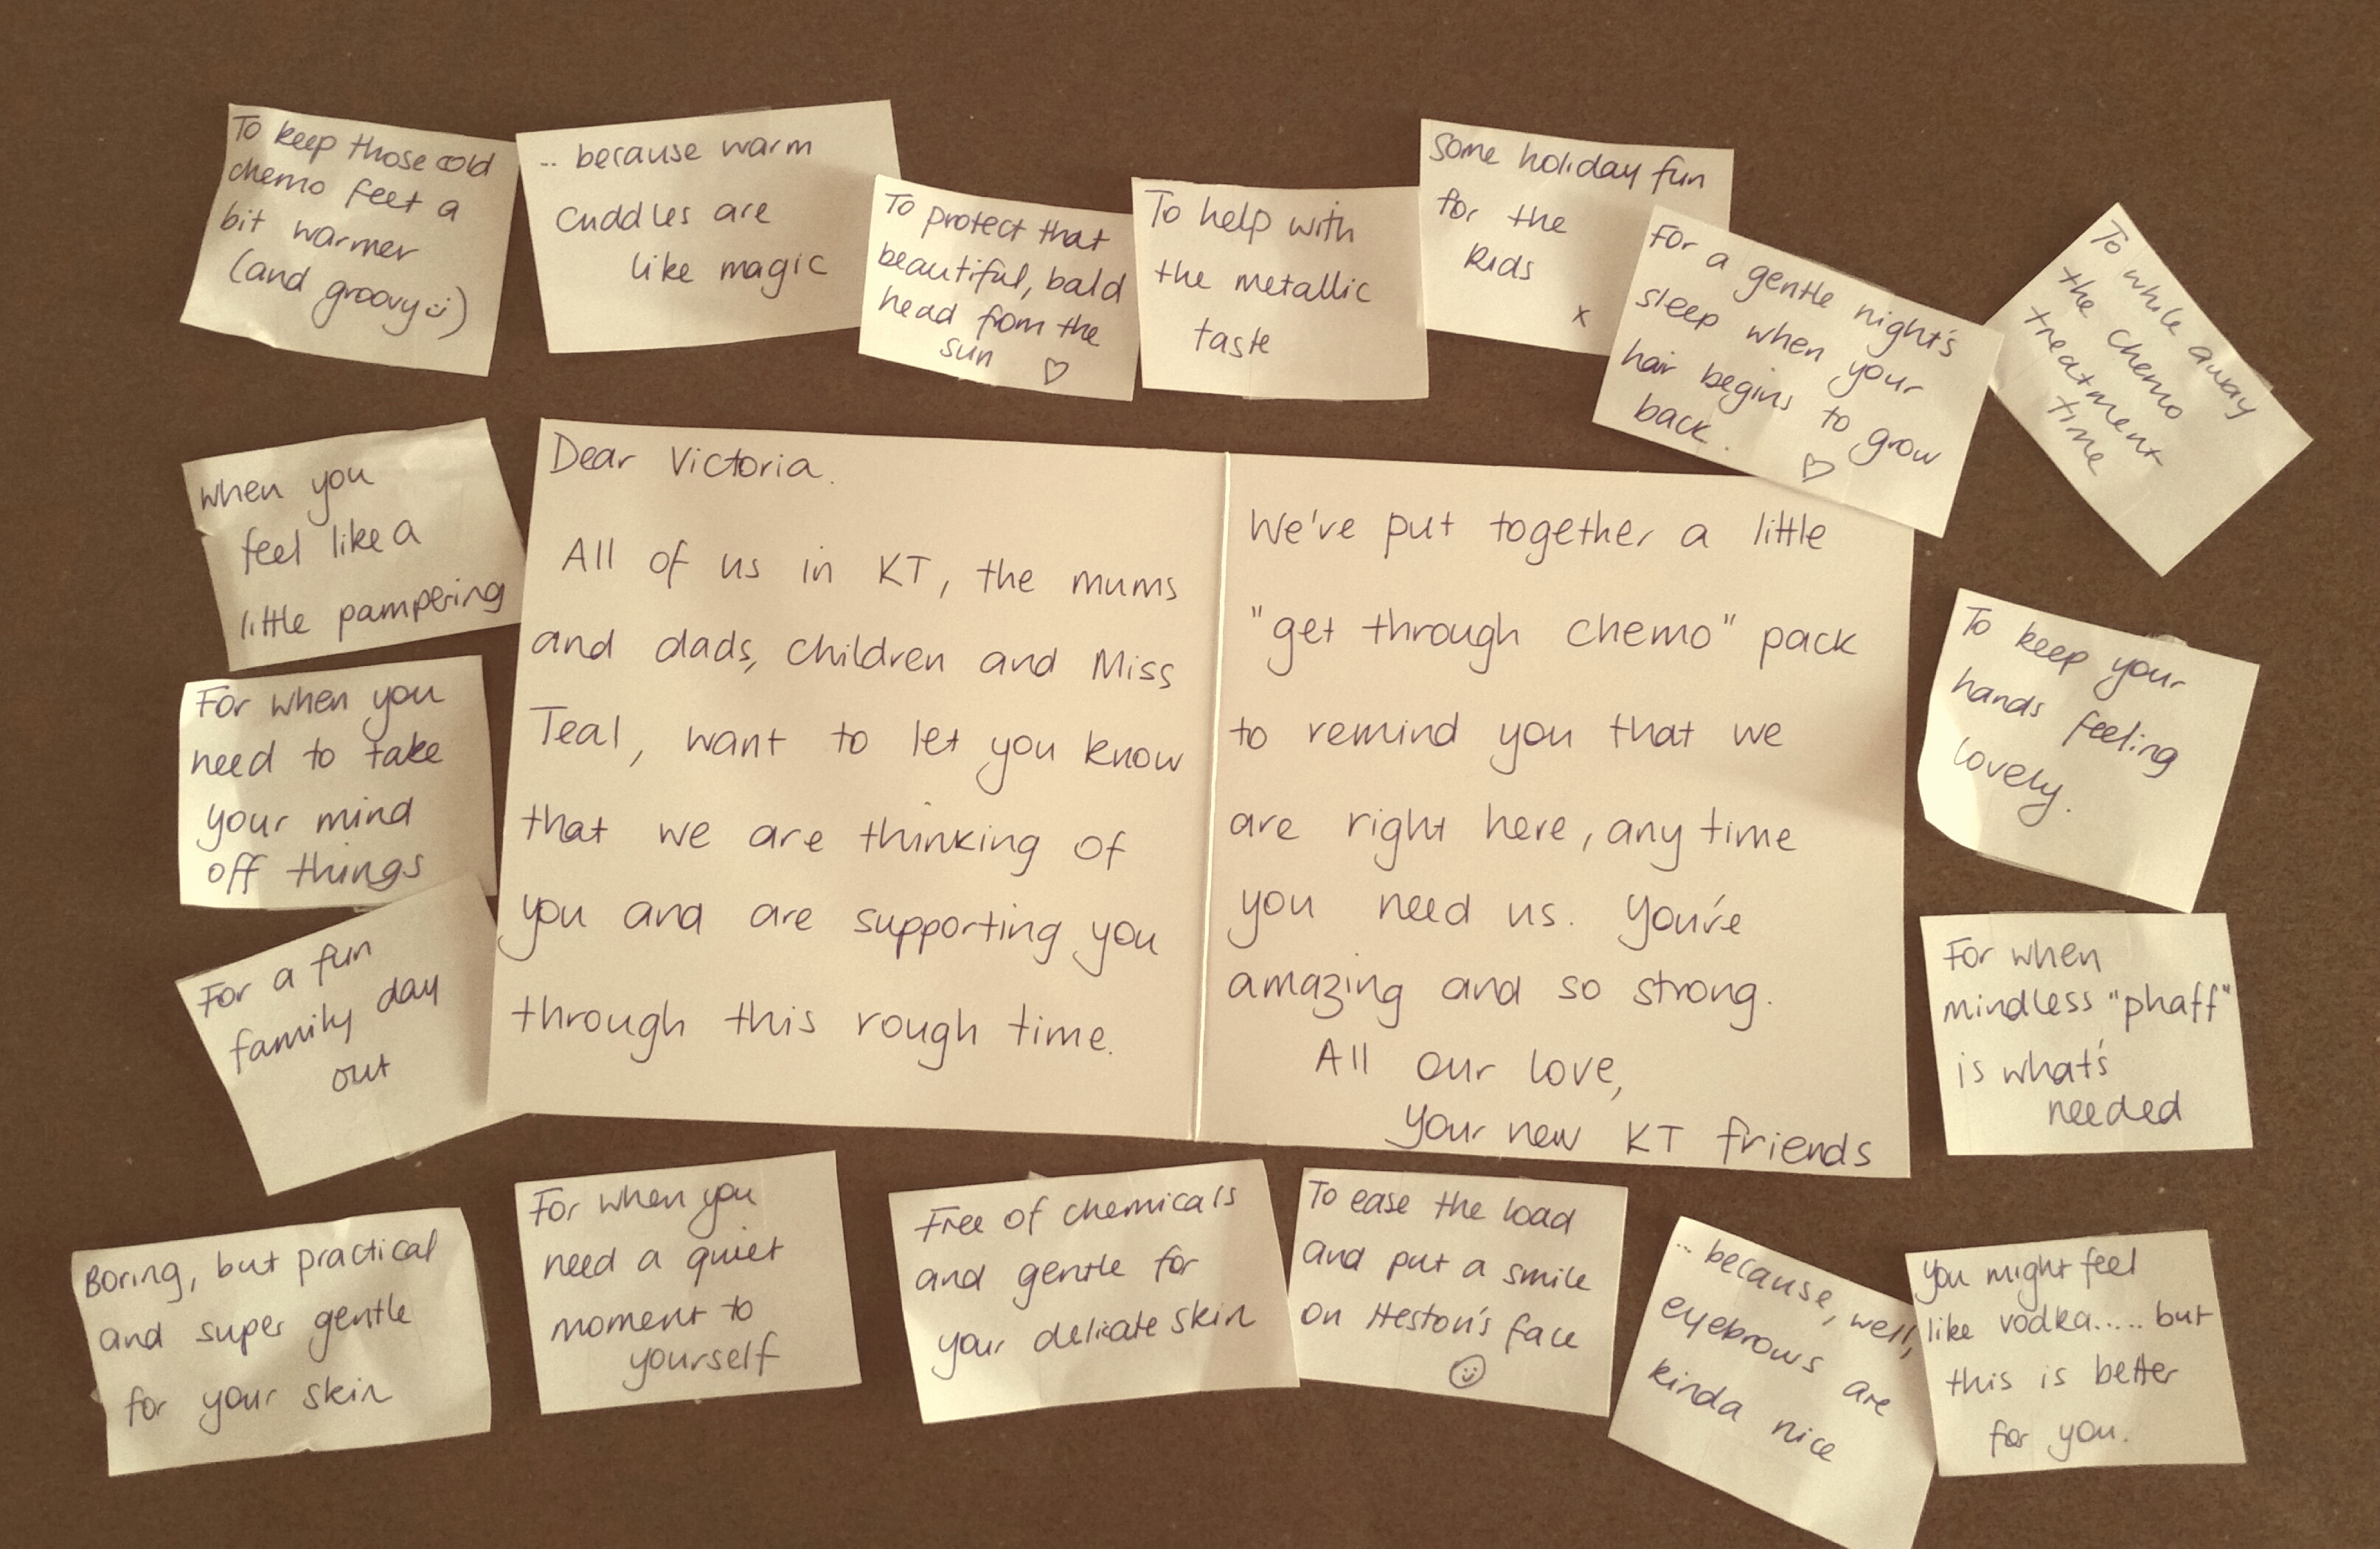 To keep those cold
chemo feet a
bit warmer
(and groovy :))
.. because warm
cuddles are
like magic
To protect that
beautiful, bald
head from the
sun ♡
To help with
the metallic
taste
Some holiday fun
for the
kids
x
For a gentle night's
sleep when your
hair begins to grow
back.
♡
To while away
the chemo
treatment
time
when you
feel like a
little pampering
For when you
need to take
your mind
off things
For a fun
family day
out
Dear Victoria.
All of us in KT, the mums
and dads, children and Miss
Teal, want to let you know
that we are thinking of
you and are supporting you
through this rough time.
We've put together a little
"get through chemo" pack
to remind you that we
are right here, any time
you need us. You're
amazing and so strong.
All our love,
your new KT friends
To keep your
hands feeling
lovely.
For when
mindless "phaff"
is what's
needed
Boring, but practical
and super gentle
for your skin
For when you
need a quiet
moment to
yourself
Free of chemicals
and gentle for
your delicate skin
To ease the load
and put a smile
on Heston's face
☺
.. because, well,
eyebrows are
kinda nice
You might feel
like vodka..... but
this is better
for you.